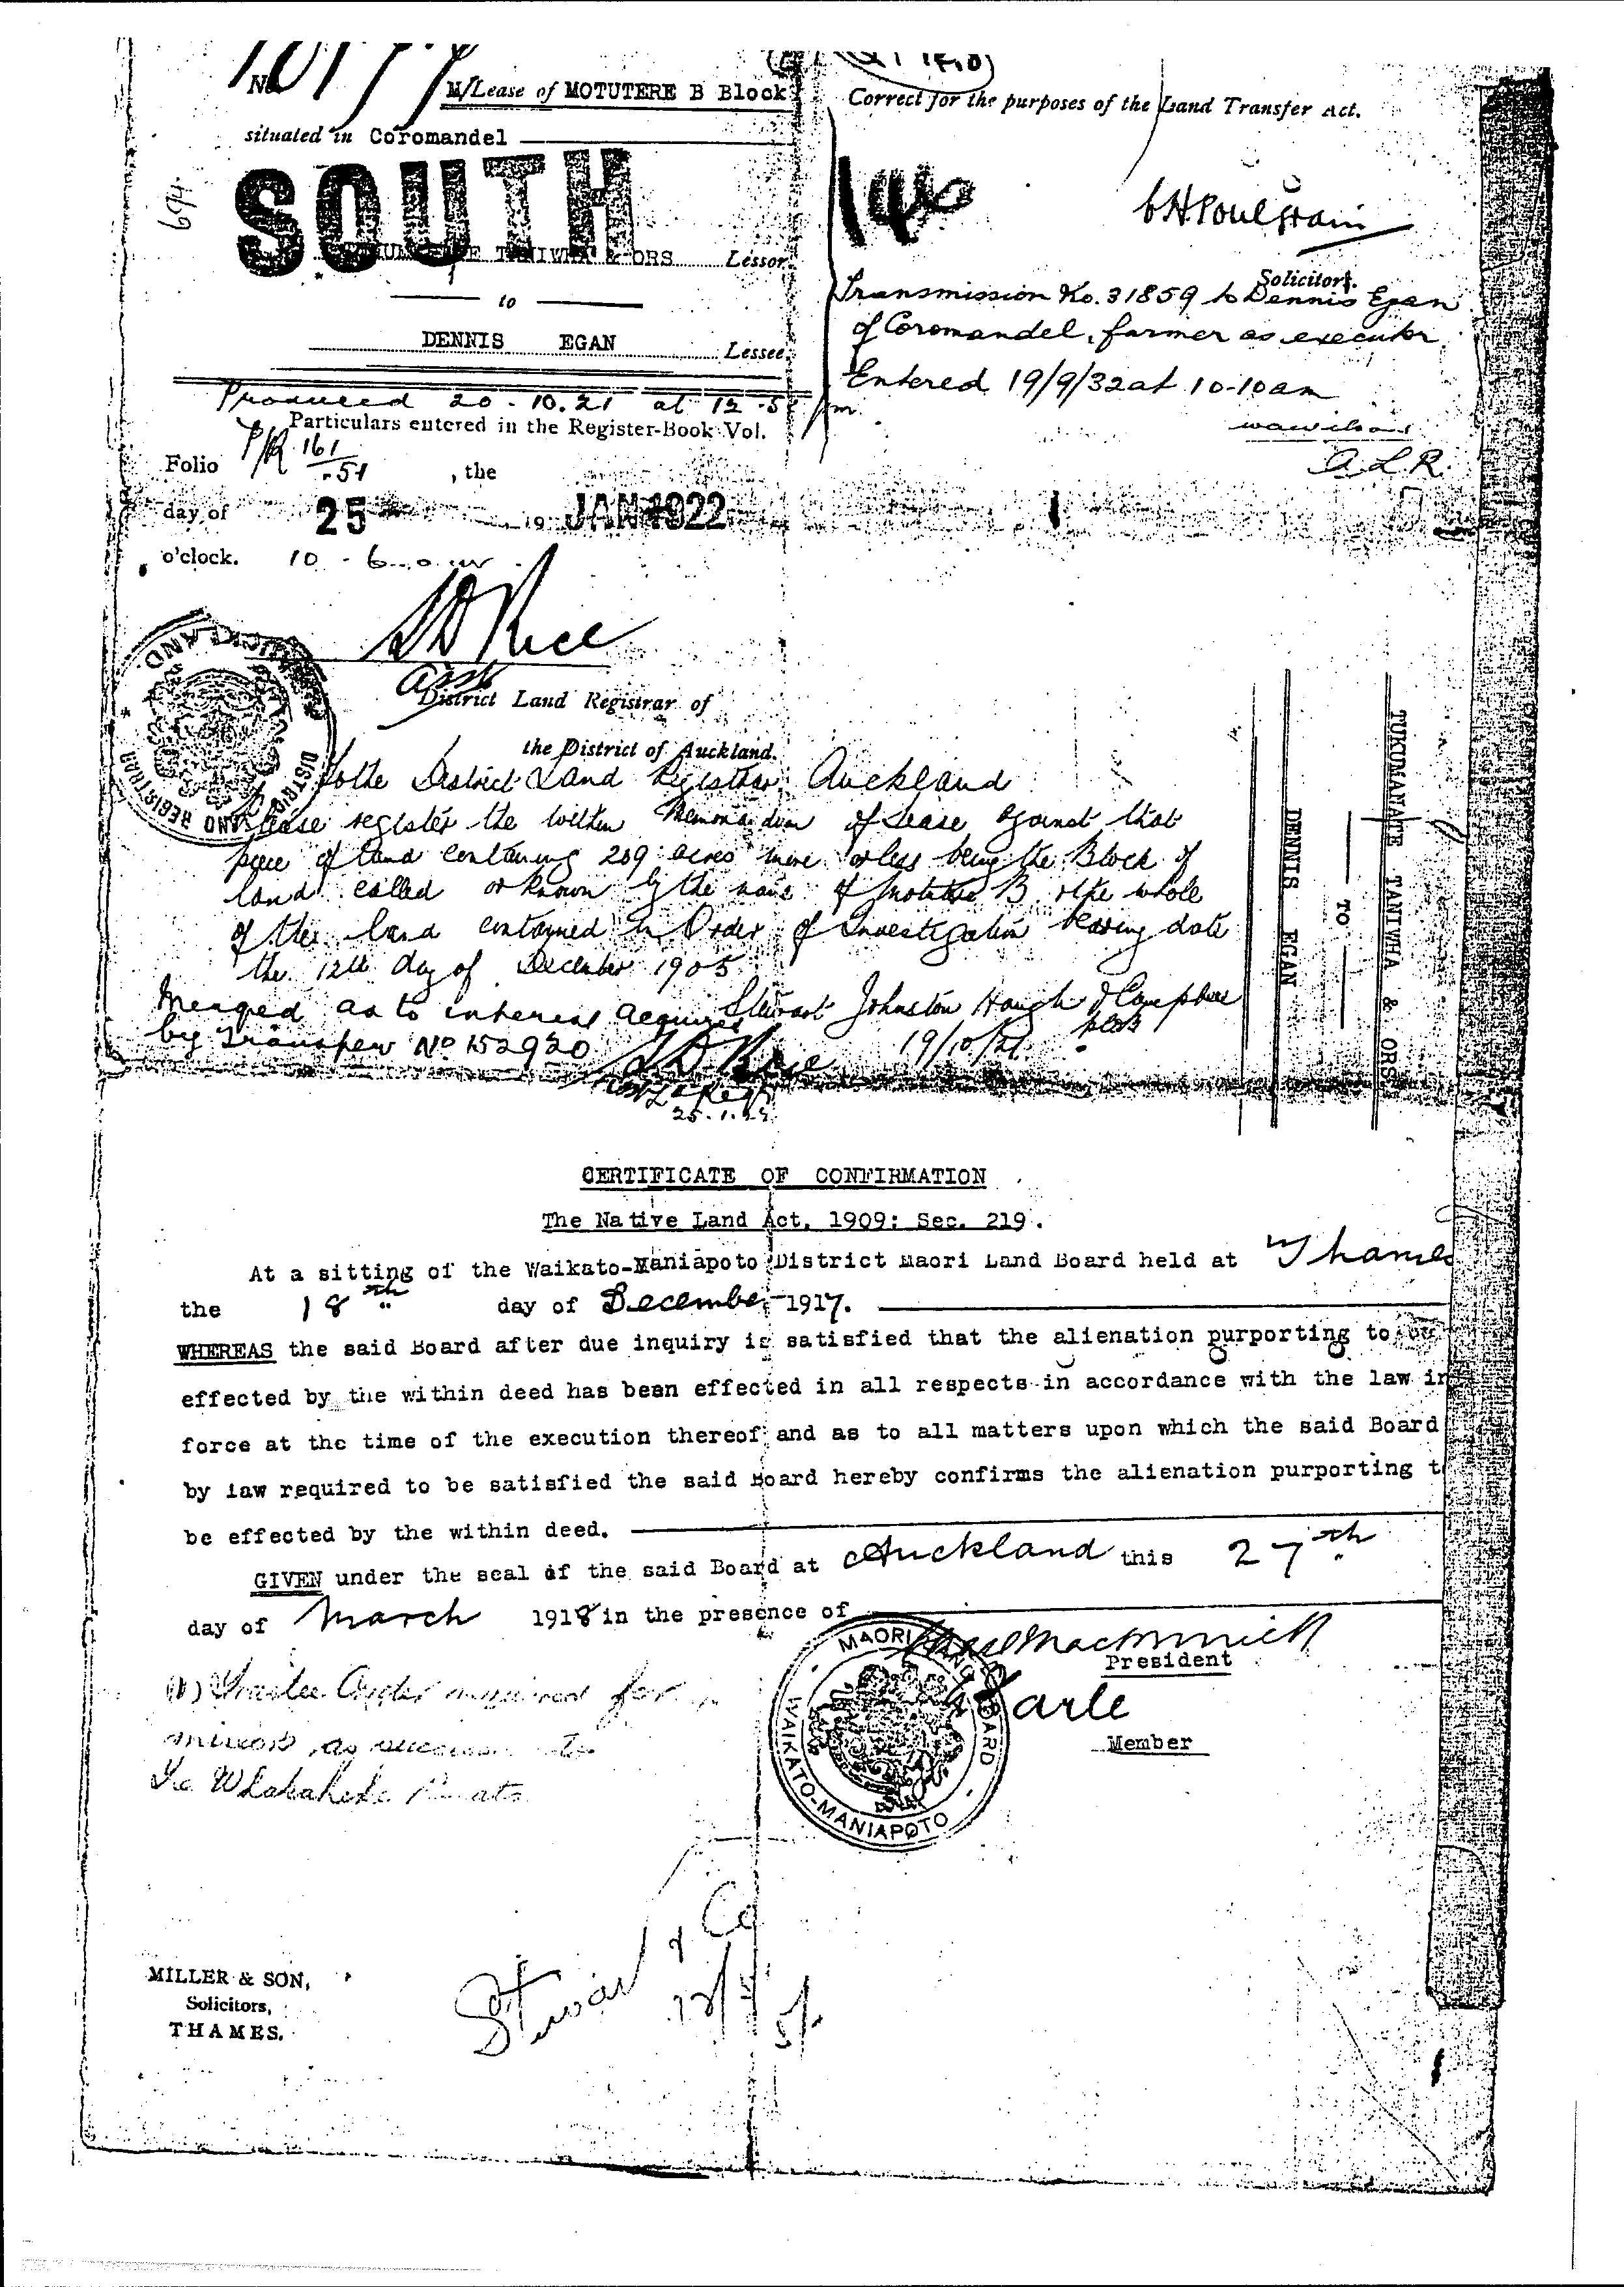 No.
M/Lease of MOTUTERE B Block
situated in Coromandel
SOUTH
TANIWHA & ORS Lessor.
to
DENNIS EGAN Lessee.
Produced 20.10.21 at 12.5 pm.
Particulars entered in the Register-Book Vol.
Folio P/R 161/51, the
day of 25 JAN 1922 19
o'clock. 10 - 6 a.m.
Asst
District Land Registrar of
the District of Auckland.
DISTRICT LAND REGISTRAR
Correct for the purposes of the Land Transfer Act.
Solicitors.
Transmission No. 31859 to Dennis Egan
of Coromandel, farmer as executor
Entered 19/9/32 at 10-10 am
A.L.R.
694
To the District Land Registrar Auckland
Please register the within Memorandum of Lease against that
piece of land containing 209 acres more or less being the Block of
land called or known by the name of Motutere B the whole
of the land contained in Order of Investigation bearing date
the 12th day of December 1905
Stewart Johnston Hough & Campbell
19/10/21
Merged as to interest acquired
by Transfer No 152920
TUKUMANATE TANIWHA & ORS.
TO
DENNIS EGAN
CERTIFICATE OF CONFIRMATION
The Native Land Act, 1909: Sec. 219.
At a sitting of the Waikato-Maniapoto District Maori Land Board held at Thames
the 18th day of December 1917.
WHEREAS the said Board after due inquiry is satisfied that the alienation purporting to be
effected by the within deed has been effected in all respects in accordance with the law in
force at the time of the execution thereof and as to all matters upon which the said Board
by law required to be satisfied the said Board hereby confirms the alienation purporting t
be effected by the within deed.
GIVEN under the seal of the said Board at Auckland this 27th
day of March 1918 in the presence of
President
Earle
Member
MAORI LAND BOARD
WAIKATO-MANIAPOTO
Trustee Order required for
minors as successor to
Te Whakaheke
Stewart & Co
MILLER & SON,
Solicitors,
THAMES.